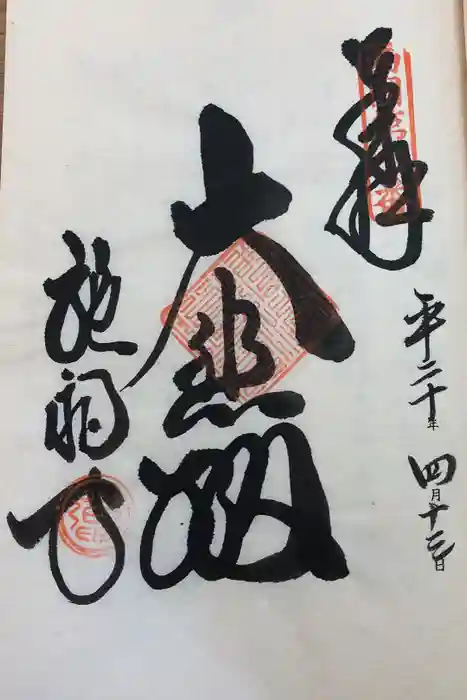 奉拝
平二十年 四月十三日
大悲殿
施福寺